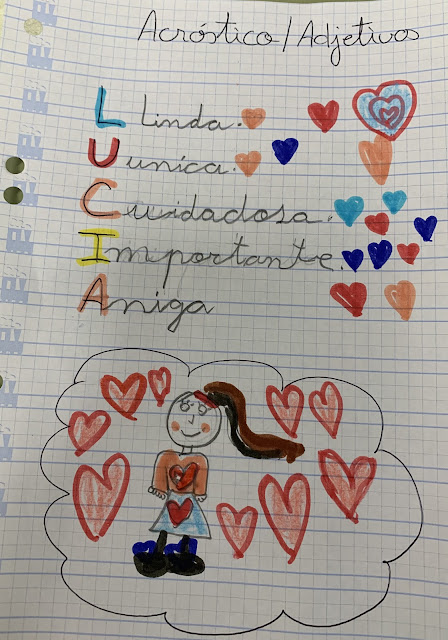 Acróstico/Adjetivos
L Linda.
U unica.
Cuidadosa.
Importante.
Aniga